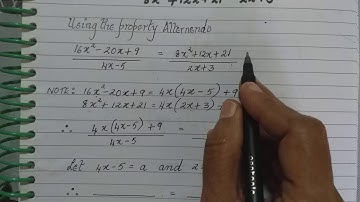 Using the property Alternendo
16x² -20x+9 / 4x-5 = 8x²+12x+21 / 2x+3
NOTE: 16x² -20x+9 = 4x(4x-5)+9
8x²+12x+21 = 4x(2x+3)+
∴ 4x(4x-5)+9 / 4x-5 =
Let 4x-5 = a and 2
∴ =